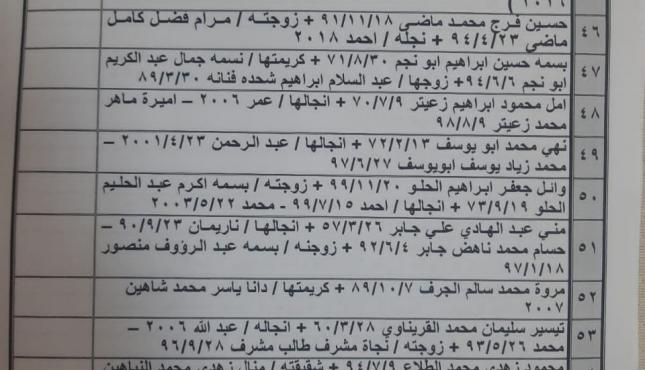 ٤٦
حسين فرج محمد ماضي ٩١/١١/١٨ + زوجته / مرام فضل كامل
ماضي ٩٤/٤/٢٣ + نجله / احمد ٢٠١٨
٤٧
بسمه حسين ابراهيم ابو نجم ٧١/٨/٣٠ + كريمتها / نسمه جمال عبد الكريم
ابو نجم ٩٤/٦/٦ + زوجها / عبد السلام ابراهيم شحده فنانه ٨٩/٣/٣٠
٤٨
امل محمود ابراهيم زعيتر ٧٠/٧/٩ + انجالها / عمر ٢٠٠٦ – اميرة ماهر
محمد زعيتر ٩٨/٨/٩
٤٩
نهي محمد ابو يوسف ٧٢/٢/١٣ + انجالها / عبد الرحمن ٢٠٠١/٤/٢٣ –
محمد زياد يوسف ابويوسف ٩٧/٦/٢٧
٥٠
وائل جعفر ابراهيم الحلو ٩٩/١١/٢٠ + زوجته / بسمه اكرم عبد الحليم
الحلو ٧٣/٩/١٩ + انجالها / احمد ٩٩/٧/١٥ - محمد ٢٠٠٣/٥/٢٢
٥١
مني عبد الهادي علي جابر ٥٧/٣/٢٦ + انجالها / ناريمان ٩٠/٩/٢٣ –
حسام محمد ناهض جابر ٩٢/٦/٤ + زوجته / بسمه عبد الرؤوف منصور
٩٧/١/١٨
٥٢
مروة محمد سالم الجرف ٨٩/١٠/٧ + كريمتها / دانا ياسر محمد شاهين
٢٠٠٧
٥٣
تيسير سليمان محمد القريناوي ٦٠/٣/٢٨ + انجاله / عبد الله ٢٠٠٦ –
محمد ٩٣/٥/٢٦ + زوجته / نجاة مشرف طالب مشرف ٩٦/٩/٢٨
محمود زهدي محمد الطلاع ٩٤/٧/٩ + شقيقته / منال زهدي محمد النباهين